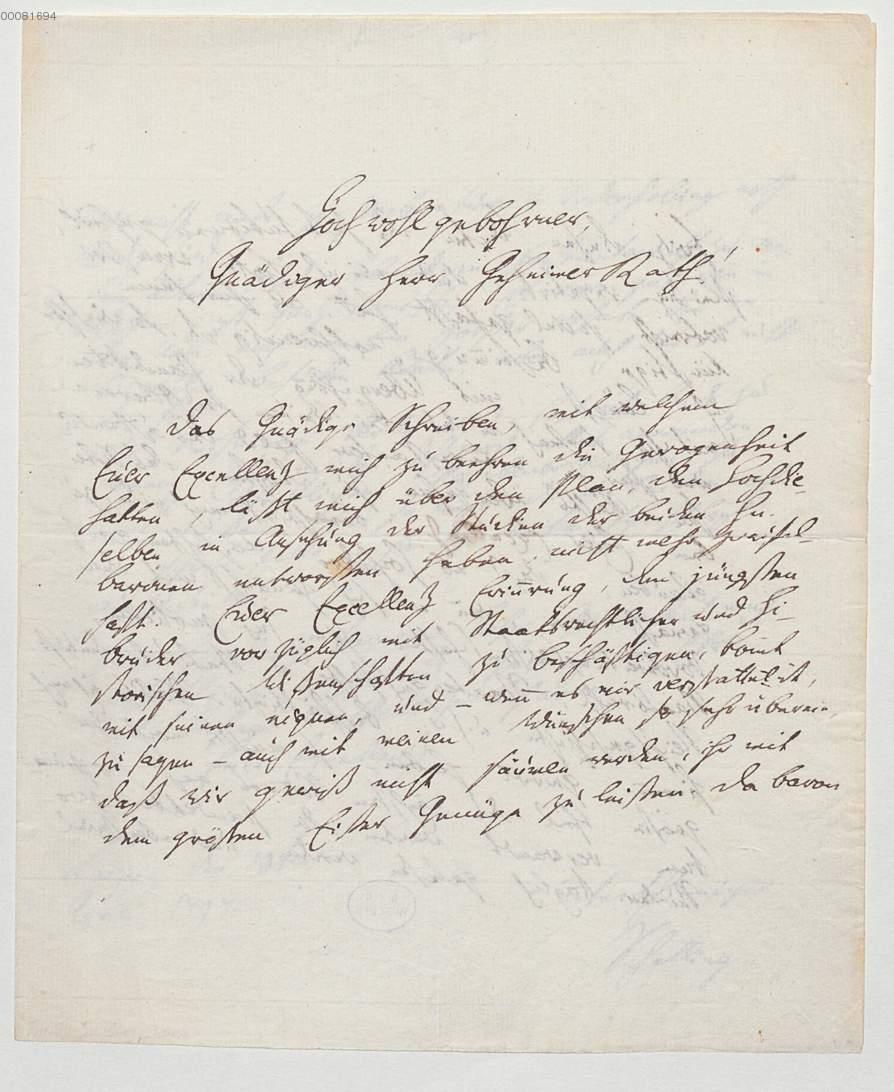 00081694
Hochwohlgebohrner,
Gnädiger Herr Geheimer Rath!
Das Gnädige Schreiben, mit welchem
Euer Excellenz mich zu beehren die Gewogenheit
hatten, läßt mich über den Plan, den Hochdie-
selben in Ansehung der Studien der beiden Hn.
baronen entworffen haben, nicht mehr zweifel-
haft. Euer Excellenz Erinnrung, den jüngsten
bruder vorzüglich mit Staatsrechtlichen und hi-
storischen Wissenschaften zu beschäftigen, kömt
mit seinen eignen, und – wenn es mir verstattet ist,
zu sagen – auch mit meinen Wünschen so sehr überein,
daß wir gewiß nicht säumen werden, ihr mit
dem grösten Eifer Genüge zu leisten. Da baron